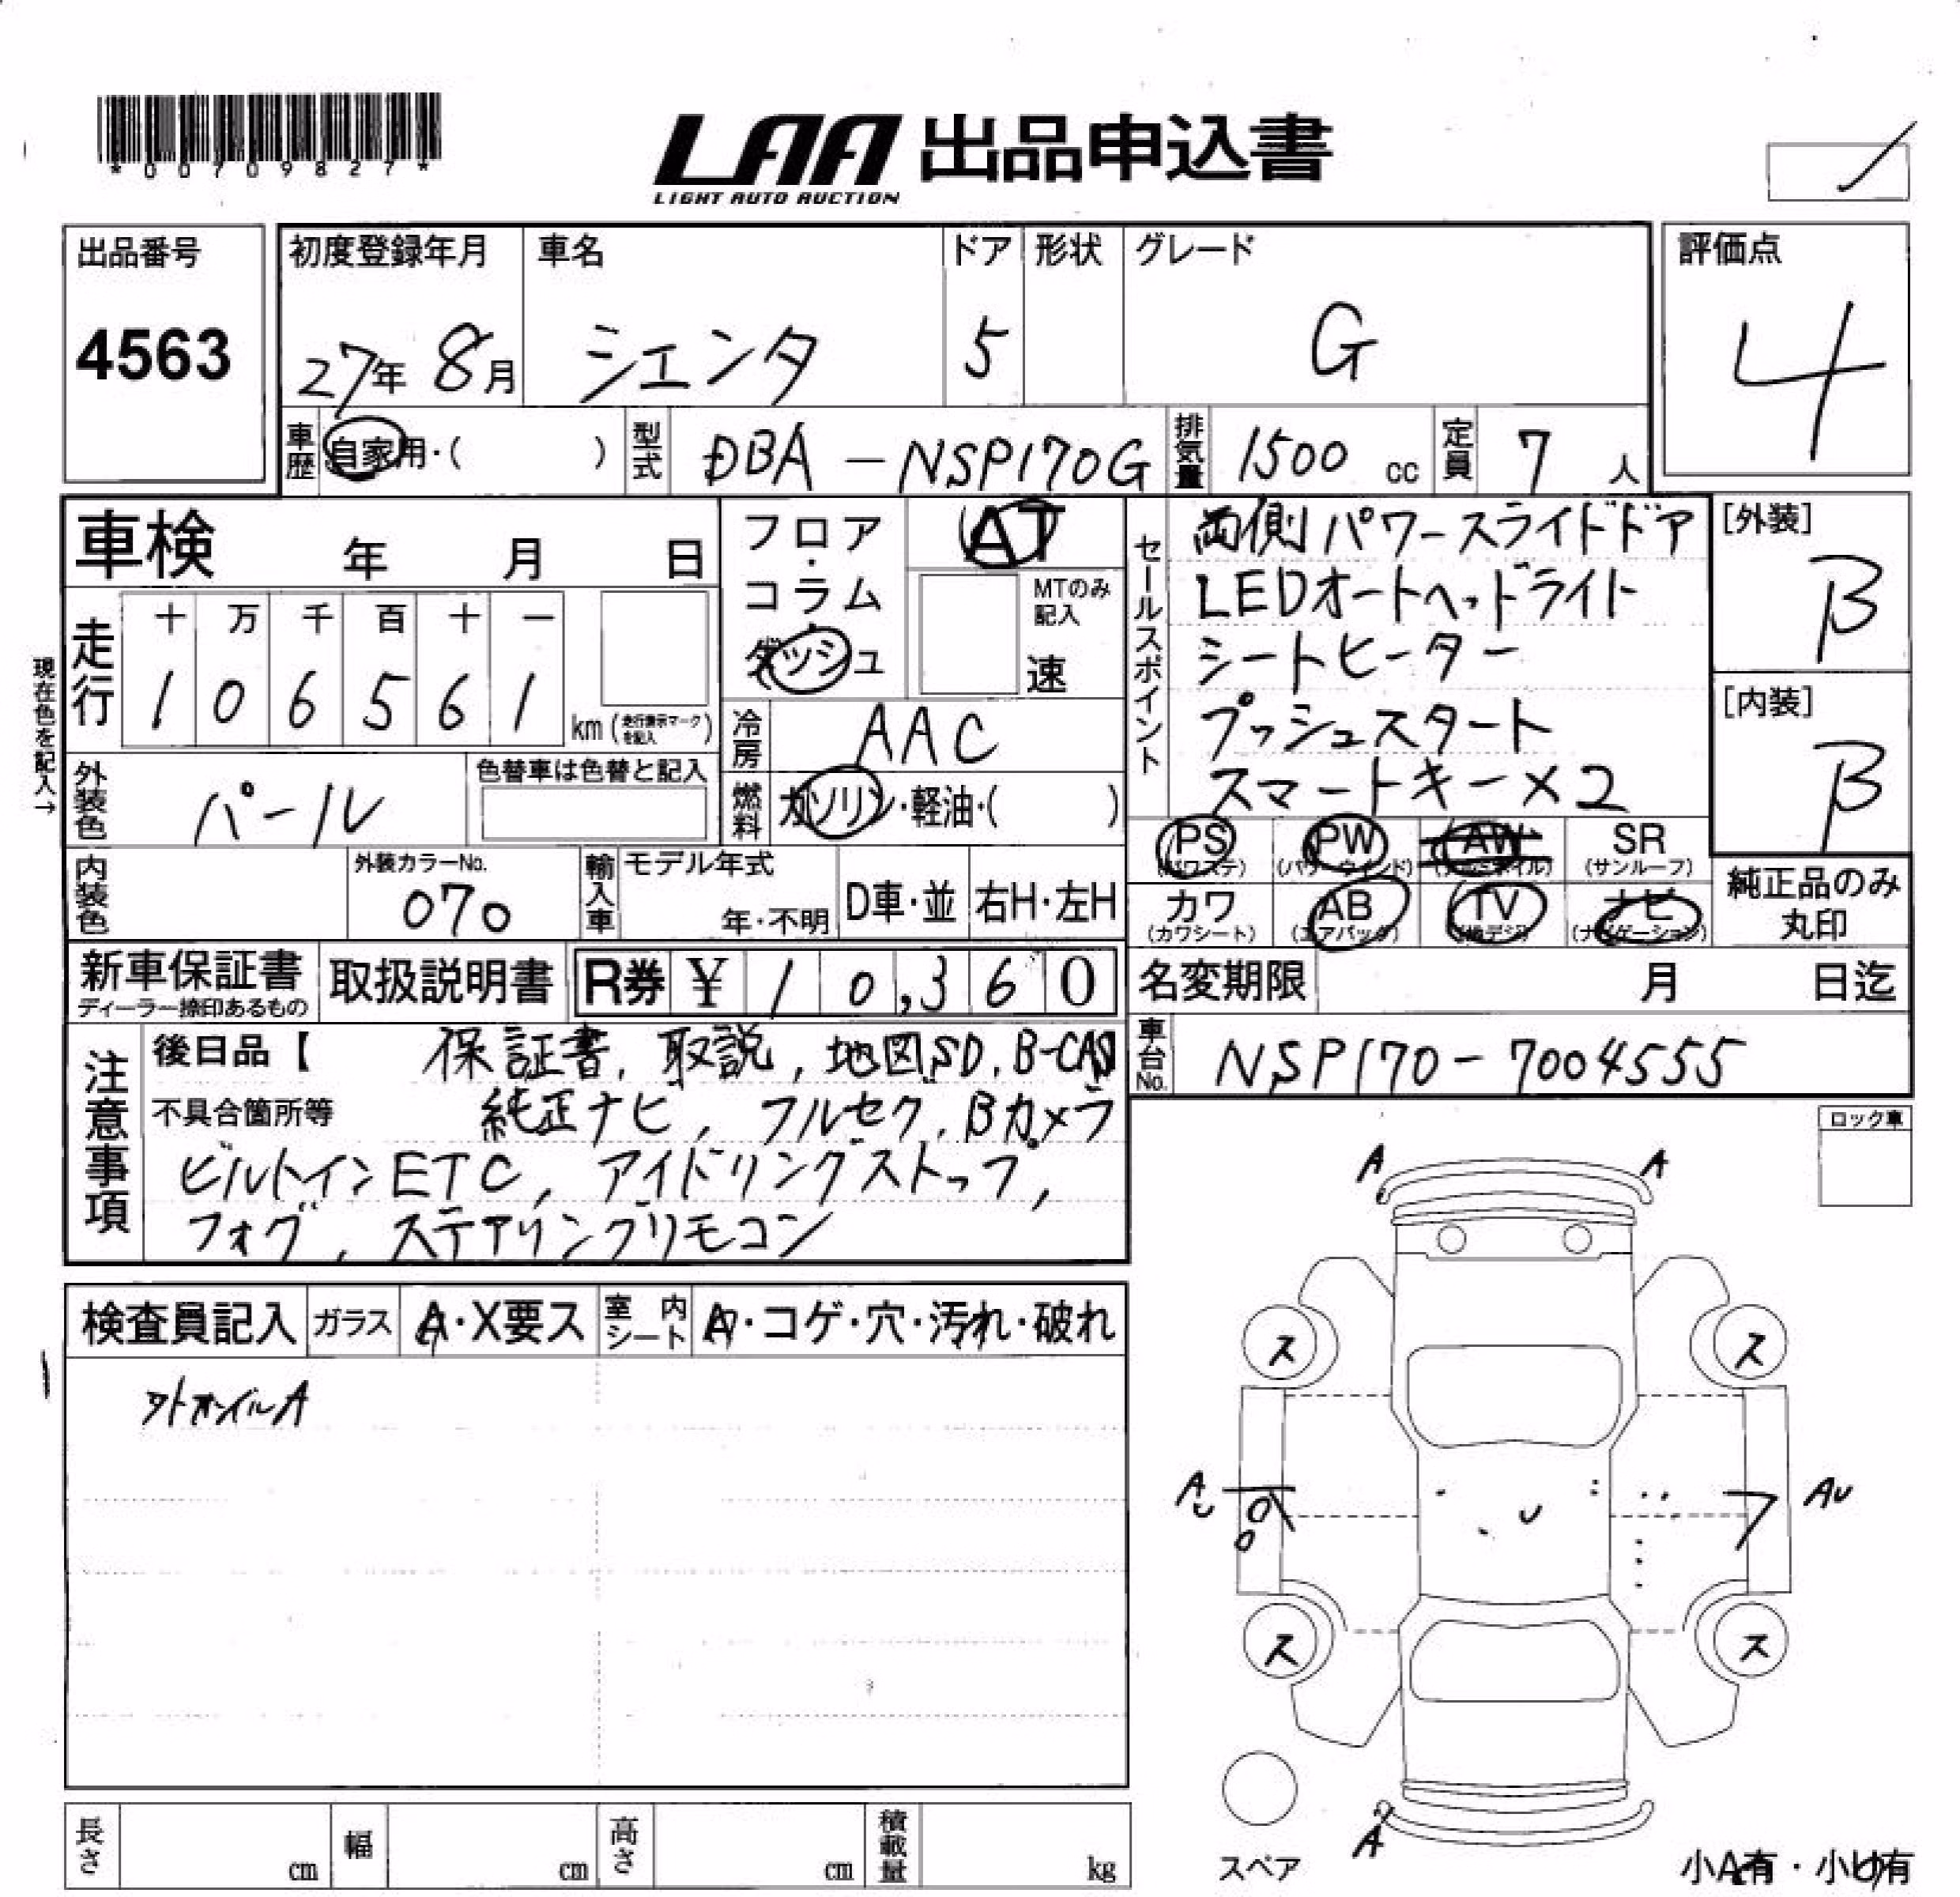 *00709827*
LAA 出品申込書
LIGHT AUTO AUCTION
出品番号
4563
初度登録年月
27年 8月
車名
シエンタ
ドア
5
形状
グレード
G
評価点
4
車歴
自家用・( )
型式
DBA-NSP170G
排気量
1500 cc
定員
7 人
車検 年 月 日
走行
十 万 千 百 十 一
1 0 6 5 6 1
km (走行表示マークを記入)
現在色を記入→
外装色
パール
色替車は色替と記入
内装色
外装カラーNo.
070
輸入車
モデル年式
年・不明
D車・並
右H・左H
フロア
・
コラム
・
ダッシュ
AT
MTのみ
記入
速
冷房
AAC
燃料
ガソリン・軽油・( )
セールスポイント
両側パワースライドドア
LEDオートヘッドライト
シートヒーター
プッシュスタート
スマートキー×2
[外装]
B
[内装]
B
PS
(パワステ)
PW
(パワーウインド)
AW
(アルミホイル)
SR
(サンルーフ)
カワ
(カワシート)
AB
(エアバック)
TV
(地デジ)
ナビ
(ナビゲーション)
純正品のみ
丸印
新車保証書
ディーラー捺印あるもの
取扱説明書
R券 ¥ 10,360
名変期限 月 日迄
車台No.
NSP170-7004555
注意事項
後日品【 保証書, 取説, 地図SD, B-CAS
不具合箇所等 純正ナビ, フルセグ, Bカメラ
ビルトインETC, アイドリングストップ,
フォグ, ステアリングリモコン
ロック車
検査員記入
ガラス
A・X要ス
室内シート
A・コゲ・穴・汚れ・破れ
A A
ス ス
AU AU
U
ス ス
A
スペア
小A有・小U有
長さ cm
幅 cm
高さ cm
積載量 kg